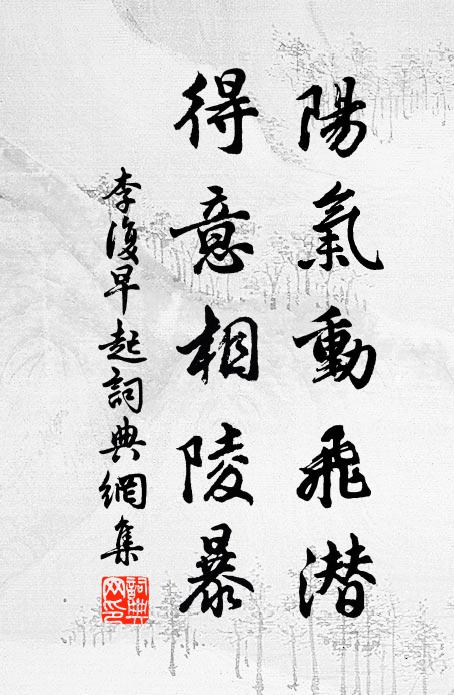 陽氣動飛潜
得意相陵暴
李復早起詞典網集
詞典網印